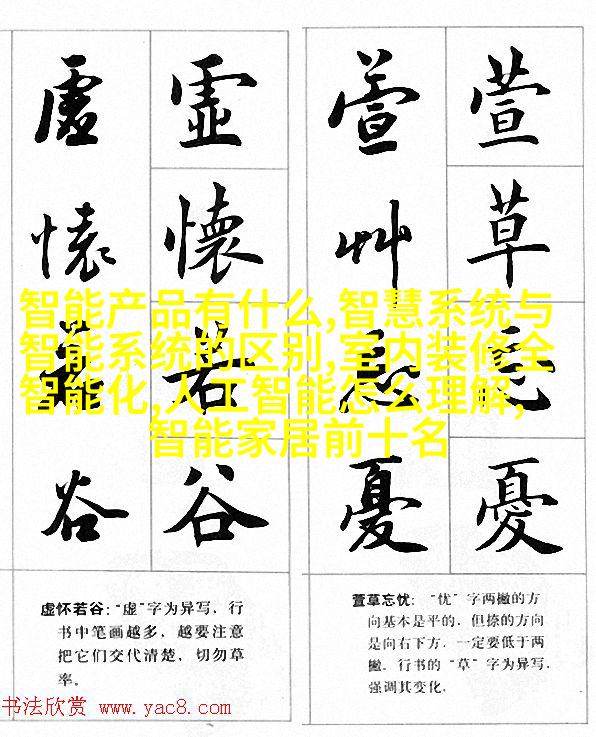 虛懷若谷
虛懷若谷
萱艸忘憂
萱草忘憂
智能产品有什么,智慧系统与
智能系统的区别,室内装修全
智能化,人工智能怎么理解,
智能家居前十名
虚怀若谷：“虚”字为异写，行
书中笔画越多，越要注意
把它们交代清楚，切勿草
率。
萱草忘忧：“忧”字两撇的方
向基本是平的，但捺的方向
是向右下方，一定要低于两
撇。行书的“草”字为异写，
强调其变化。
书法欣赏 www.yac8.com